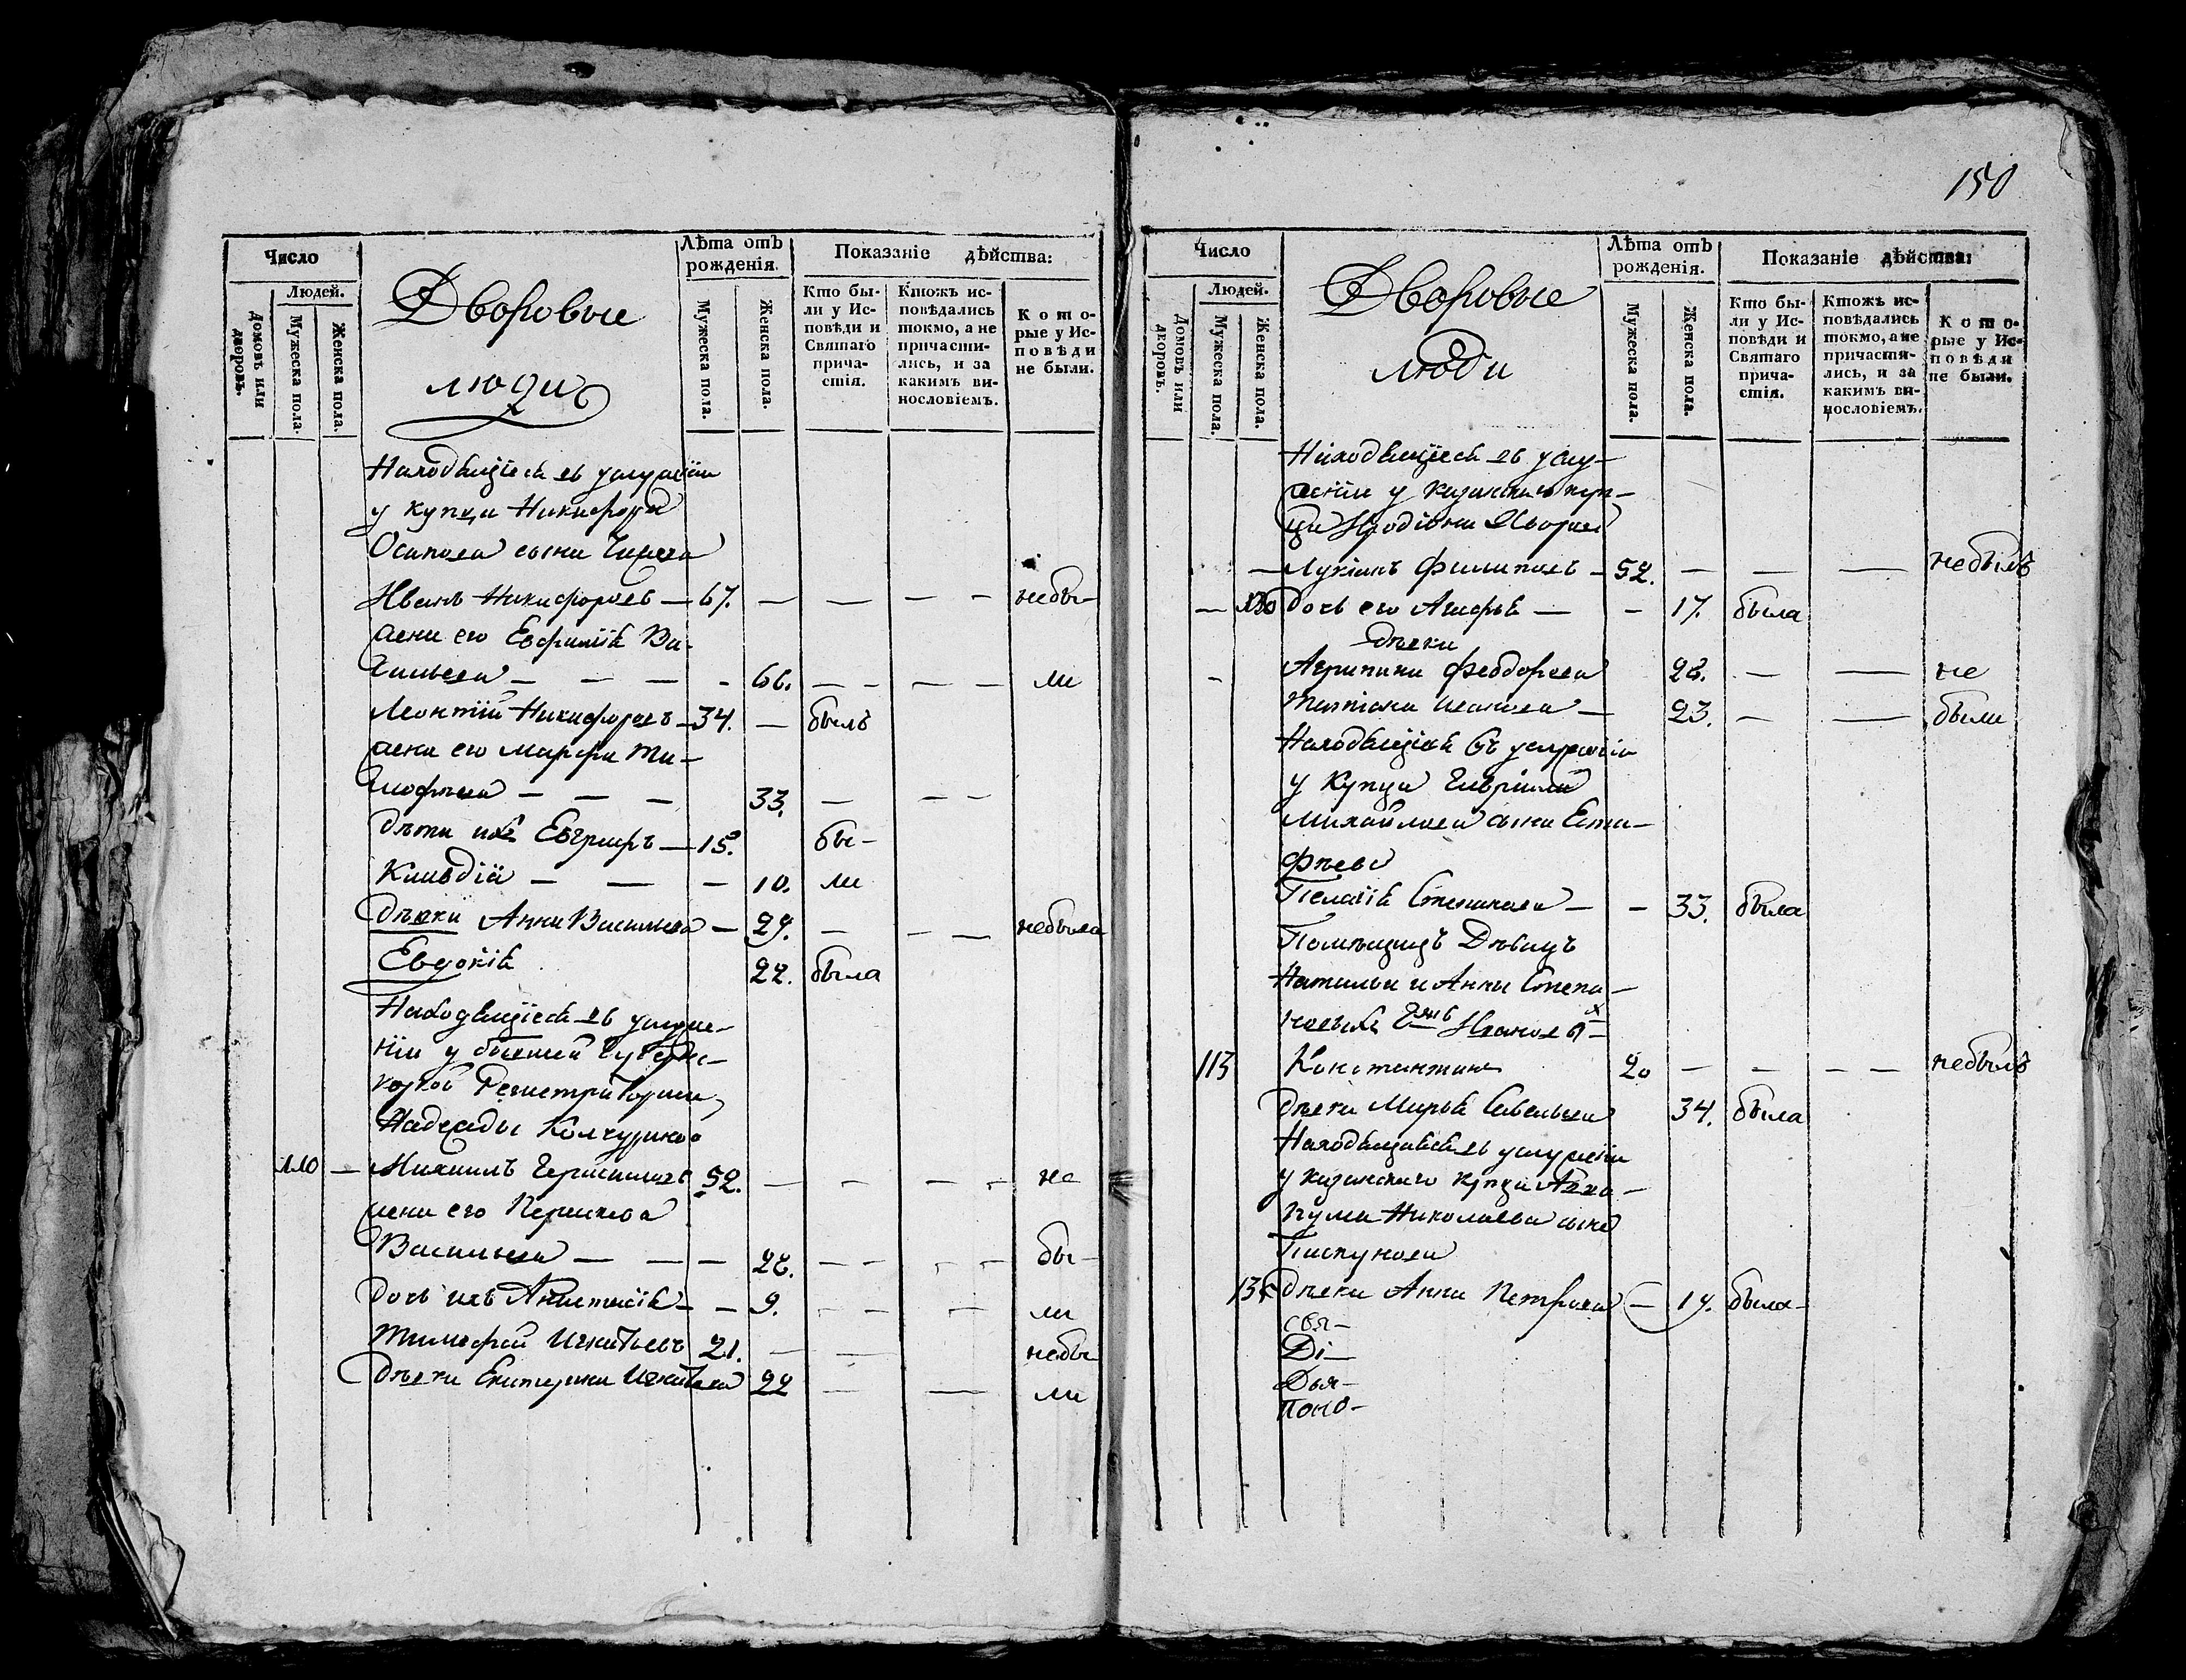 Число
Людей.
Домовъ или дворовъ.
Мужеска пола.
Женска пола.
Дворовые
люди
Лѣта отъ
рожденія.
Мужеска пола.
Женска пола.
Показаніе дѣйства:
Кто бы-
ли у Ис-
повѣди и
Святаго
прича-
стія.
Ктожъ ис-
повѣдались
токмо, а не
причасти-
лись, и за
какимъ ви-
нословіемъ.
Кото-
рые у Ис-
повѣди
не были.
Находящіеся въ услуженіи
у купца Никифора
Осипова сына
Иванъ Никифоровъ — 67. — — — — небы-
жена его Евфимія Ва-
сильева — — — - 66. — - — — ли
Леонтій Никифоровъ — 34. — былъ
жена его Марфа Ти-
мофеева — — — 33. — — —
дѣти ихъ Евграфъ — 15. бы-
Клавдія — — — 10. ли
дѣвки Анна Васильева — 29. — — — небыла
Евдокія 22. была
Находящіеся въ услуже-
ніи у бывшей Губерн-
ской Регистраторши
Надежды
110 — Михаилъ Герасимовъ 52. — — — - не
жена его Перасковья
Васильева — — — 28. — - - — бы-
дочь ихъ Анастасія — — 9. - - — ли
Тимофей Игнатьевъ 21. — — небы
дѣвка Екатерина Игнатьева 22 — — ли
150
Число
Людей.
Домовъ или дворовъ.
Мужеска пола.
Женска пола.
Дворовые
люди
Лѣта отъ
рожденія.
Мужеска пола.
Женска пола.
Показаніе дѣйства:
Кто бы-
ли у Ис-
повѣди и
Святаго
прича-
стія.
Ктожъ ис-
повѣдались
токмо, а не
причастя-
лись, и за
какимъ ви-
нословіемъ.
Кото-
рые у Ис-
повѣди
не были.
Находящіеся въ услу-
женіи у казанскаго куп-
ца Иродіона
— Лукіанъ Филиповъ — 52. — — — небылъ
— 130 дочь его Агафья — - 17. была
дѣвки
- Агрипина Феодорова 28. — — не
Татіана Иванова — 23. — — были
Находящіяся въ услуженіи
у купца Гавріила
Михайлова сына Еста-
фьева
Пелагія Степанова — - 33. была
Помѣщицъ Дѣвицъ
Натальи и Анны Степа-
новыхъ
113 Константинъ 20 — — — — небылъ
дѣвка Марья Савельева 34. была
Находящаяся въ услуженіи
у казанскаго купца Абба-
кума Николаева сына
Пискунова
135 дѣвка Анна Петрова — 19. была-
свя-
Ді—
Дья-
поно-